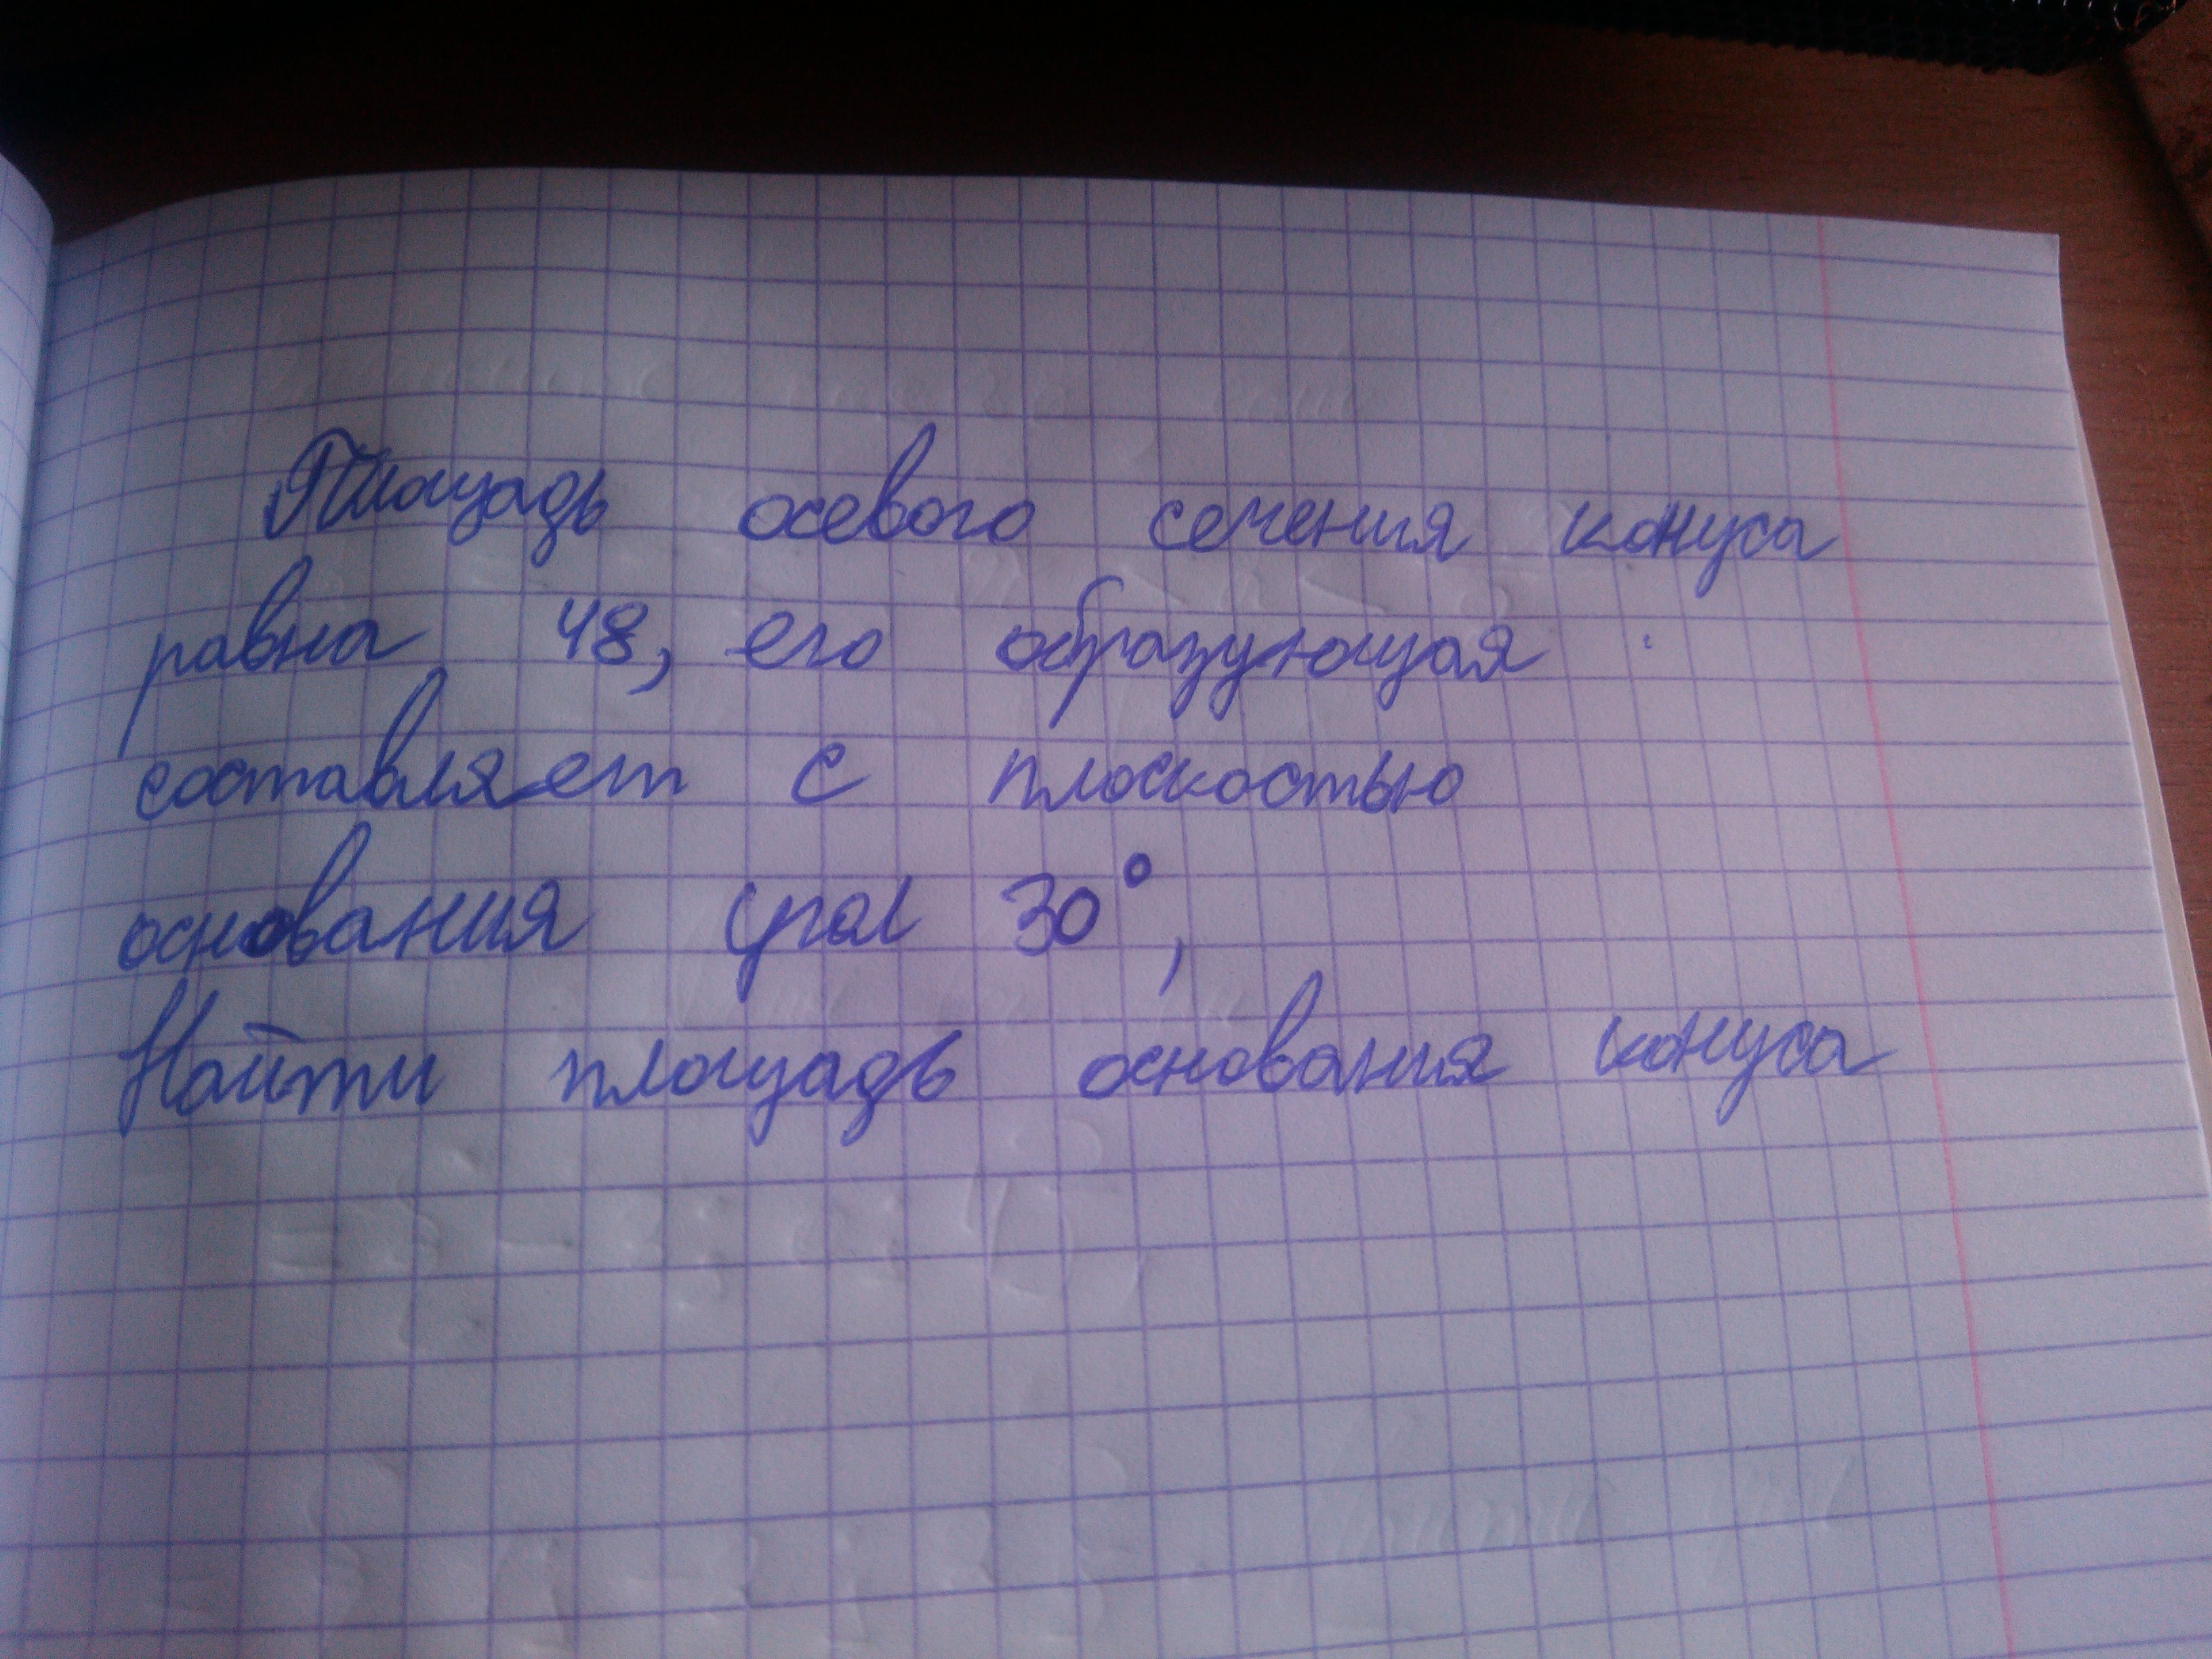 Площадь осевого сечения конуса
равна 48, его образующая
составляет с плоскостью
основания угол 30°,
Найти площадь основания конуса